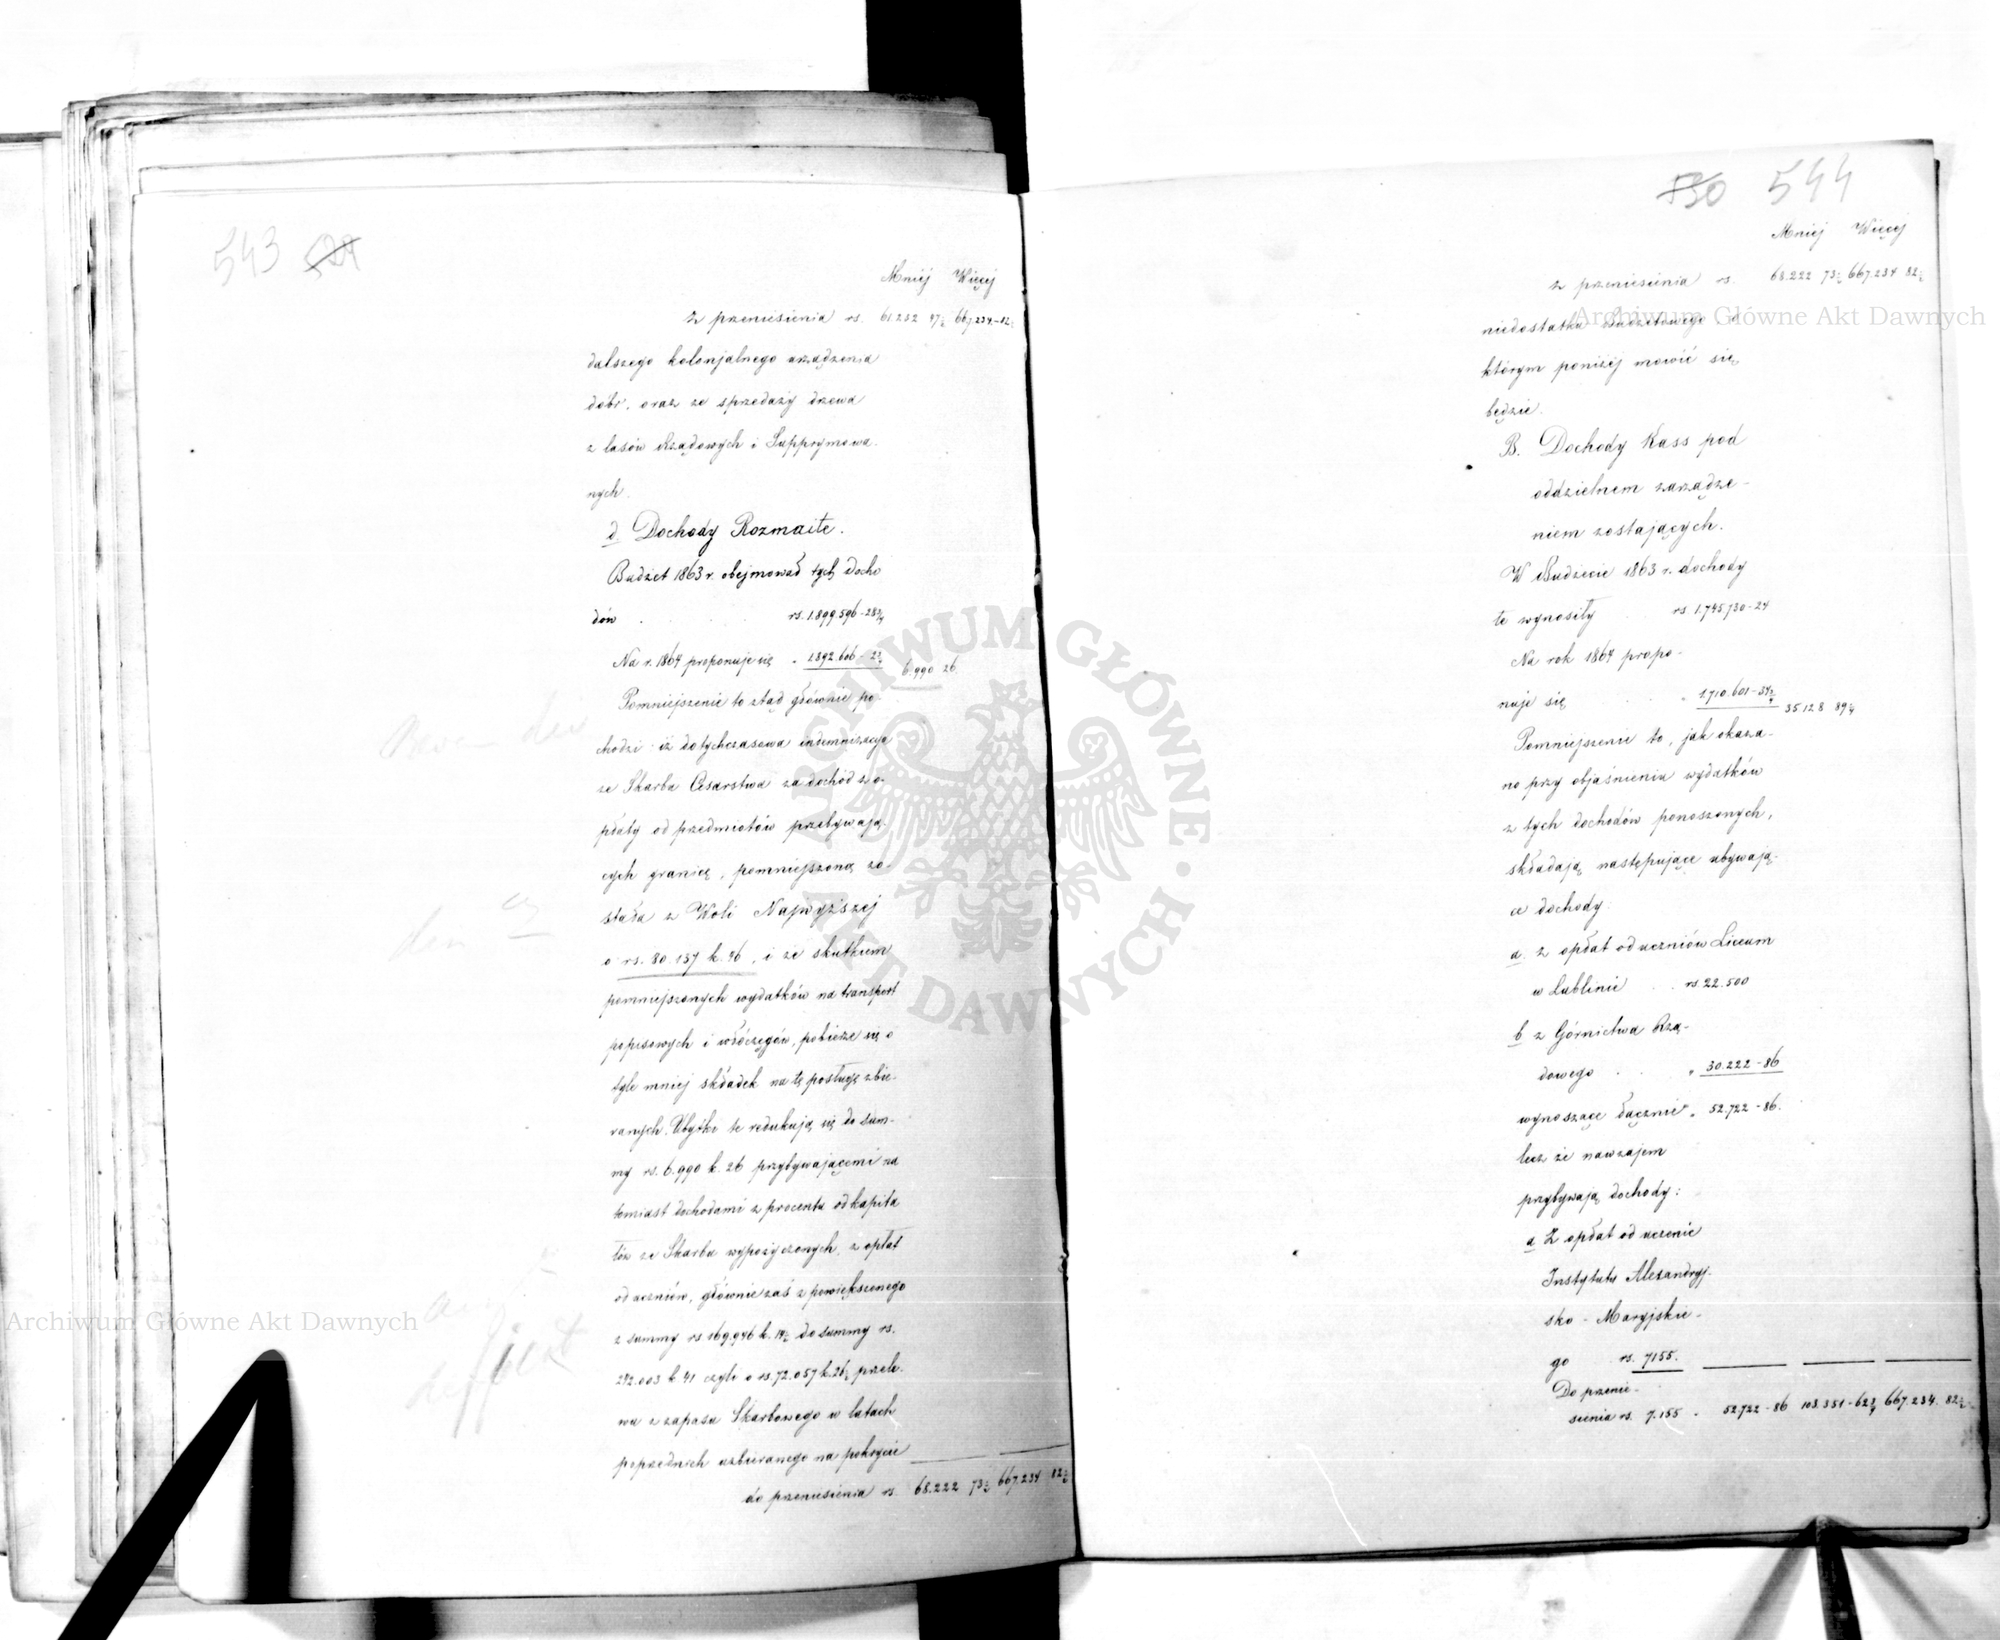 543 529
Mniej Więcej
z przeniesienia rs. 61.232 47½ 667.234-82½
dalszego kolonjalnego urządzenia
dóbr, oraz ze sprzedaży drzewa
z lasów Rządowych i Supprymowa-
nych.
d Dochody Rozmaite.
Budżet 1863 r. obejmował tych docho
dów . . . rs. 1.899.596-28¾
Na r. 1864 proponuje się " 1892.606-2¾ 6.990 26.
Pomniejszenie to ztąd głównie po-
chodzi: iż dotychczasowa indemnizacya
ze Skarbu Cesarstwa za dochód z o-
płaty od przedmiotów przebywają-
cych granicę, pomniejszoną zo-
stała z Woli Najwyższej
o rs. 80.137 k. 46, i że skutkiem
pomniejszonych wydatków na transport
popisowych i włóczęgów, pobierze się o
tyle mniej składek na tę posługę zbie-
ranych. Ubytki te redukują się do sum-
my rs. 6.990 k. 26 przybywającemi na
tomiast dochodami z procentu od kapita
łów ze Skarbu wypożyczonych, z opłat
od uczniów, głównie zaś z powiększonego
z summy rs 169.946 k. 14½ do summy rs.
242.003 k 41 czyli o rs. 72.057 k. 26½ przele-
wu z zapasu Skarbowego w latach
poprzednich uzbieranego na pokrycie
do przeniesienia rs. 68.222 73½ 667.234 82½
Archiwum Główne Akt Dawnych
530 544
Mniej Więcej
z przeniesienia rs. 68.222 73½ 667.234 82½
Archiwum Główne Akt Dawnych
niedostatku Budżetowego o
którym poniżej mowić się
będzie.
B. Dochody Kass pod
oddzielnem zarządze-
niem zostających.
W Budżecie 1863 r. dochody
te wynosiły . . rs 1.745,730-24
Na rok 1864 propo-
nuje się . . . " 1.710.601-34¾ 35.128 89¼
Pomniejszenie to, jak okaza-
no przy objaśnieniu wydatków
z tych dochodów ponoszonych,
składają następujące ubywają-
ce dochody:
a. z opłat od uczniów Liceum
w Lublinie . . rs 22.500
b z Górnictwa Rzą-
dowego . . . " 30.222-86
wynoszące łącznie " 52.722-86.
lecz że nawzajem
przybywają dochody:
a Z opłat od uczenic
Instytutu Alexandryj-
sko-Maryjskie-
go rs. 7155.
Do przenie-
sienia rs. 7.155 - 52.722-86 103.351-62¾ 667.234. 82½
ARCHIWUM GŁÓWNE AKT DAWNYCH